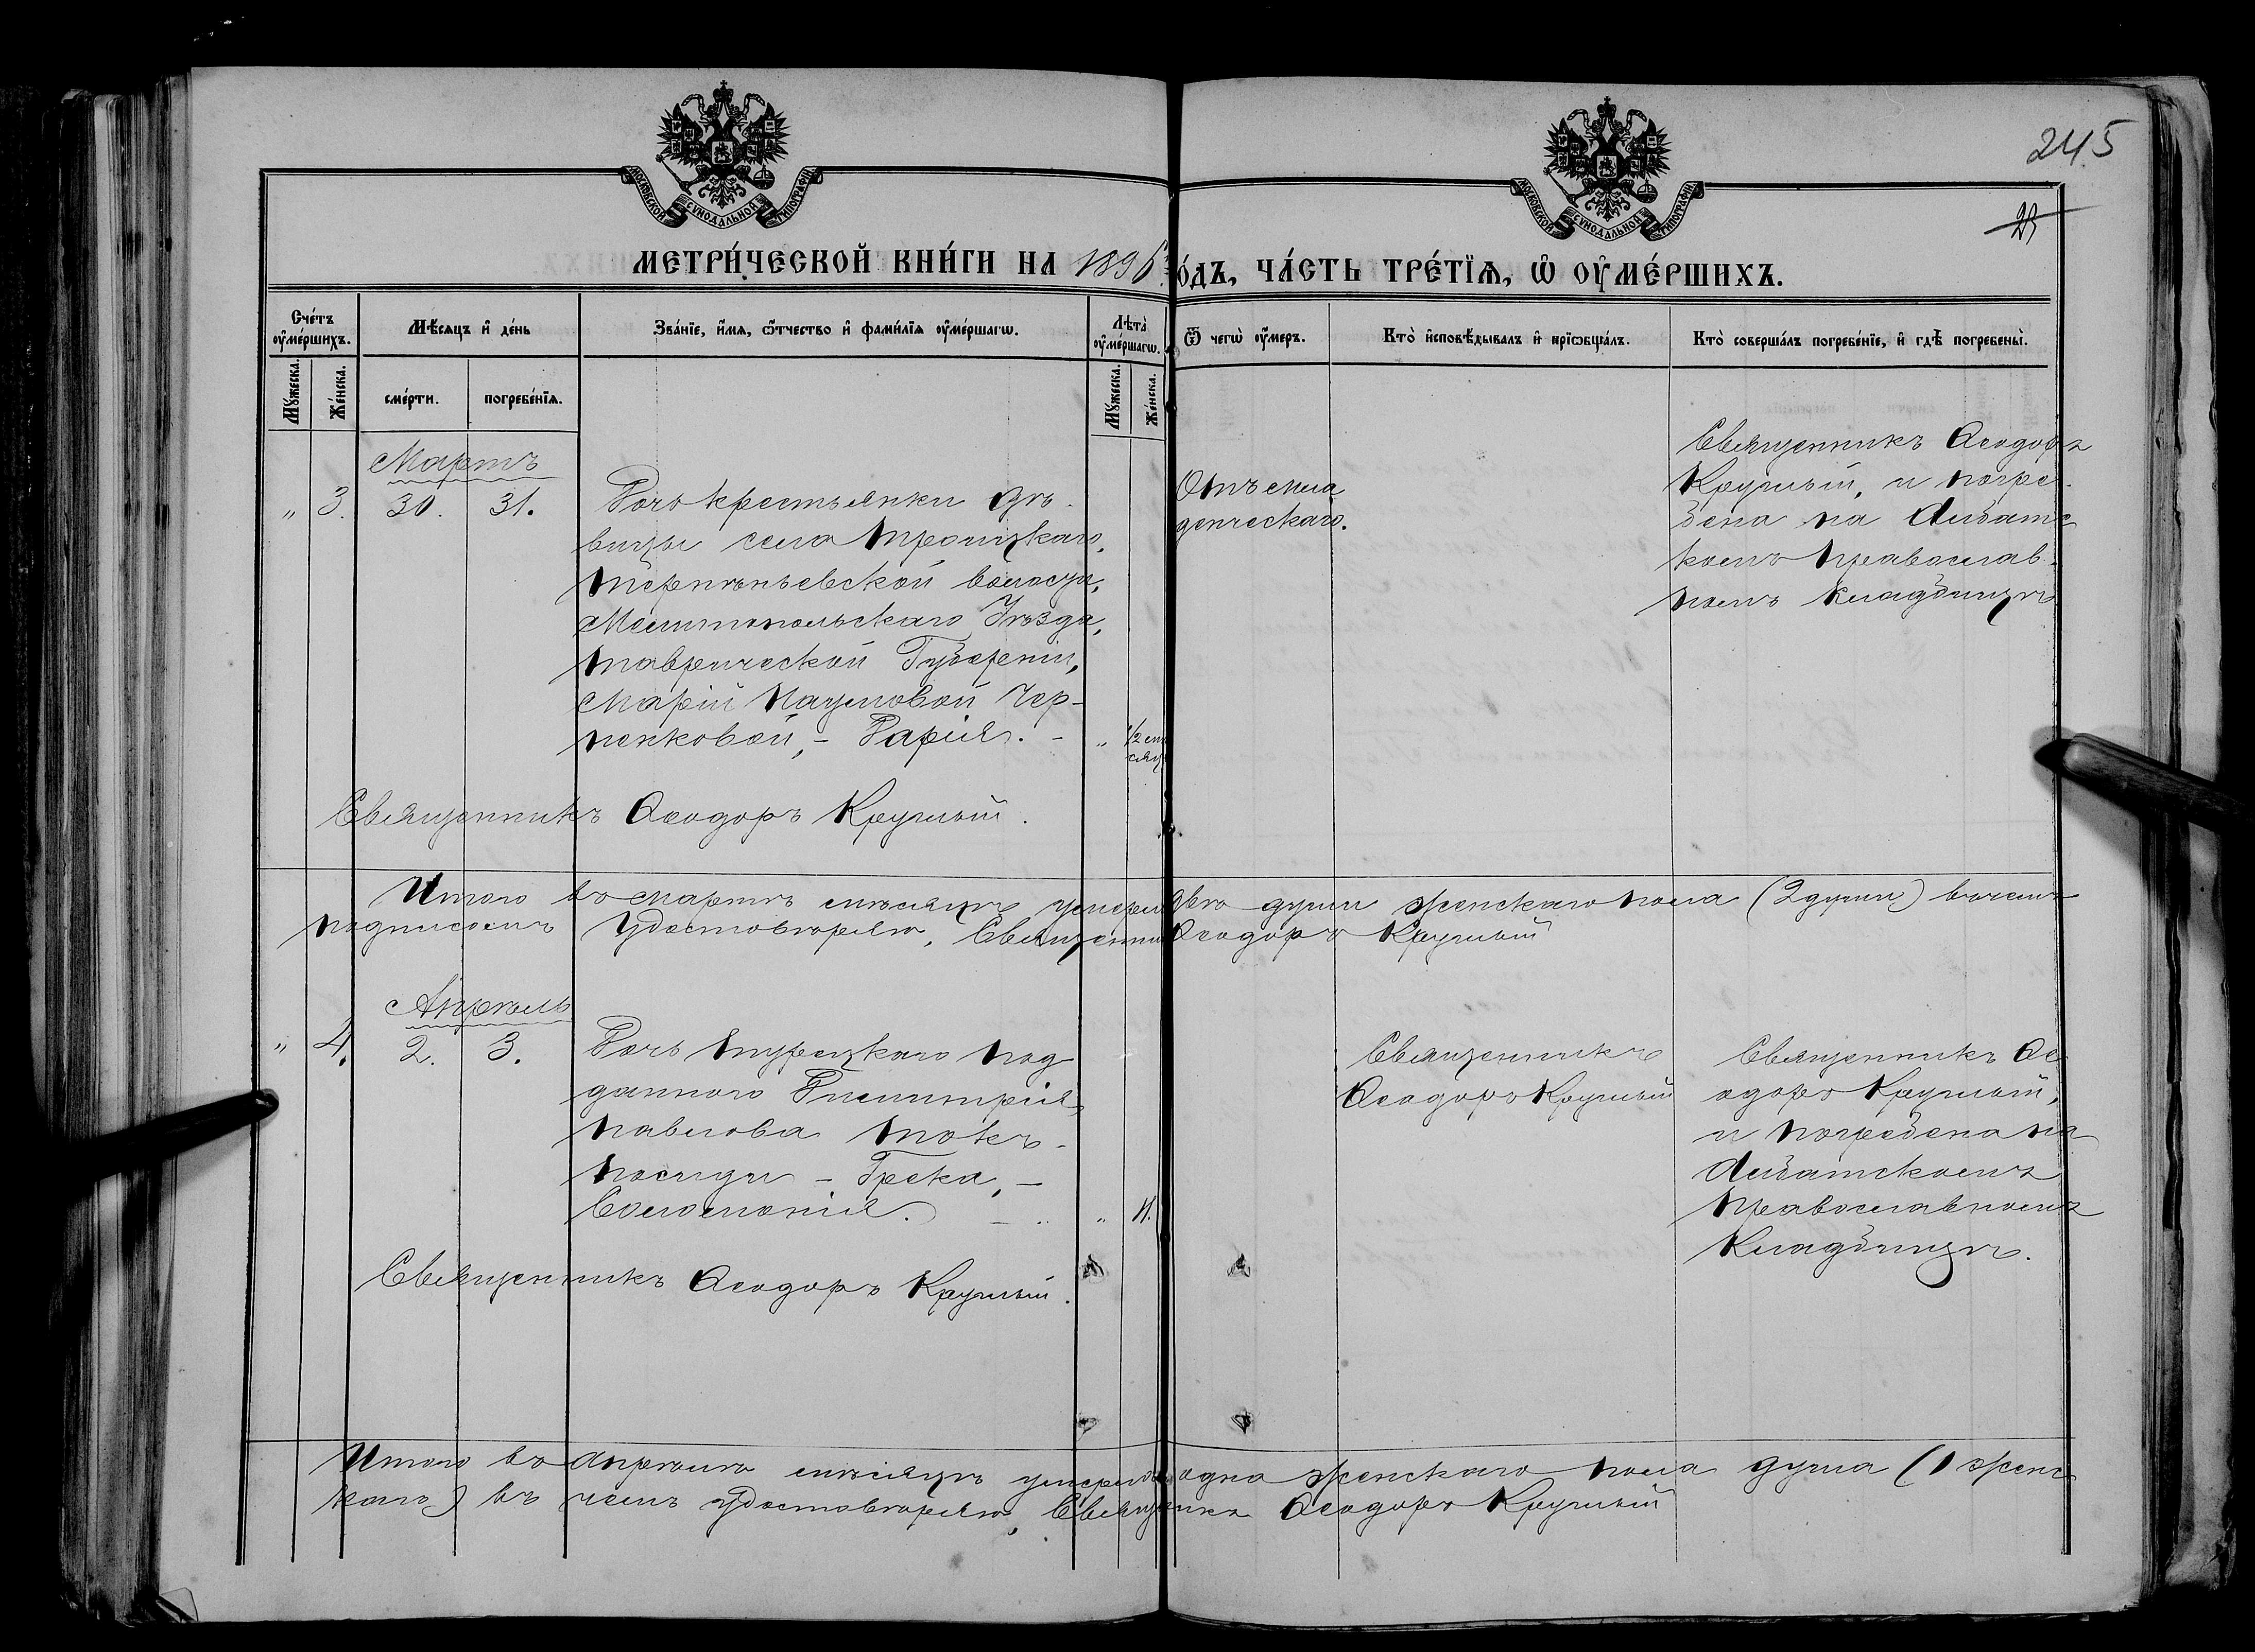 245
23
МОСКОВСКОЙ СѴНОДАЛЬНОЙ ТИПОГРАФІИ
МОСКОВСКОЙ СѴНОДАЛЬНОЙ ТИПОГРАФІИ
МЕТРИ́ЧЕСКОЙ КНИ́ГИ НА 1896 го́дъ, ЧА́СТЬ ТРЕ́ТІѦ, Ѡ҆ ОУ҆МЕ́РШИХЪ.
Сче́тъ оу҆ме́ршихъ.
Мꙋ́жеска. Же́нска.
Мѣ́сяцъ и҆ де́нь
сме́рти. погребе́нїѧ.
Зва́нїе, и҆́мѧ, ѻ҆́тчество и҆ фами́лїѧ оу҆ме́ршагѡ.
Лѣ́та оу҆ме́ршагѡ.
Мꙋ́жеска. Же́нска.
Ѿ чегѡ̀ оу҆́меръ.
Кто̀ и҆сповѣ́дывалъ и҆ прїѡбща́лъ.
Кто̀ соверша́лъ погребе́нїе, и҆ гдѣ̀ погребены̀.
Мартъ
" 3. 30. 31.
Дочь крестьянки дѣ-
вицы села Троицкаго,
Терпѣньевской волости,
Мелитопольскаго Уѣзда,
Таврической Губерніи,
Маріи Наумовой Чер-
ненковой, – Дарія. –
" 1/2 мѣ
сяц
Отъ мла
денческаго.
Священникъ Ѳеодоръ
Круглый, и погре-
бена на Аибатс
комъ Православ-
номъ кладбищѣ
Священникъ Ѳеодоръ Круглый.
Итого въ мартѣ мѣсяцѣ умерло двѣ души женскаго пола (2 души) въ чемъ
подписомъ удостовѣряю, Священни Ѳеодоръ Круглый
Апрѣль
" 4. 2. 3.
Дочь Турецкаго под
даннаго Димитрія
Павлова
Грека, –
Соломонія.
" 11.
Священникъ
Ѳеодоръ Круглый
Священникъ Ѳе
одоръ Круглый,
и погребена на
Аибатскомъ
Православномъ
Кладбищѣ.
Священникъ Ѳеодоръ Круглый.
Итого въ Апрѣлѣ мѣсяцѣ умерло одна женскаго пола душа (1 женс
каго) въ чемъ удостовѣряю, Священникъ Ѳеодоръ Круглый